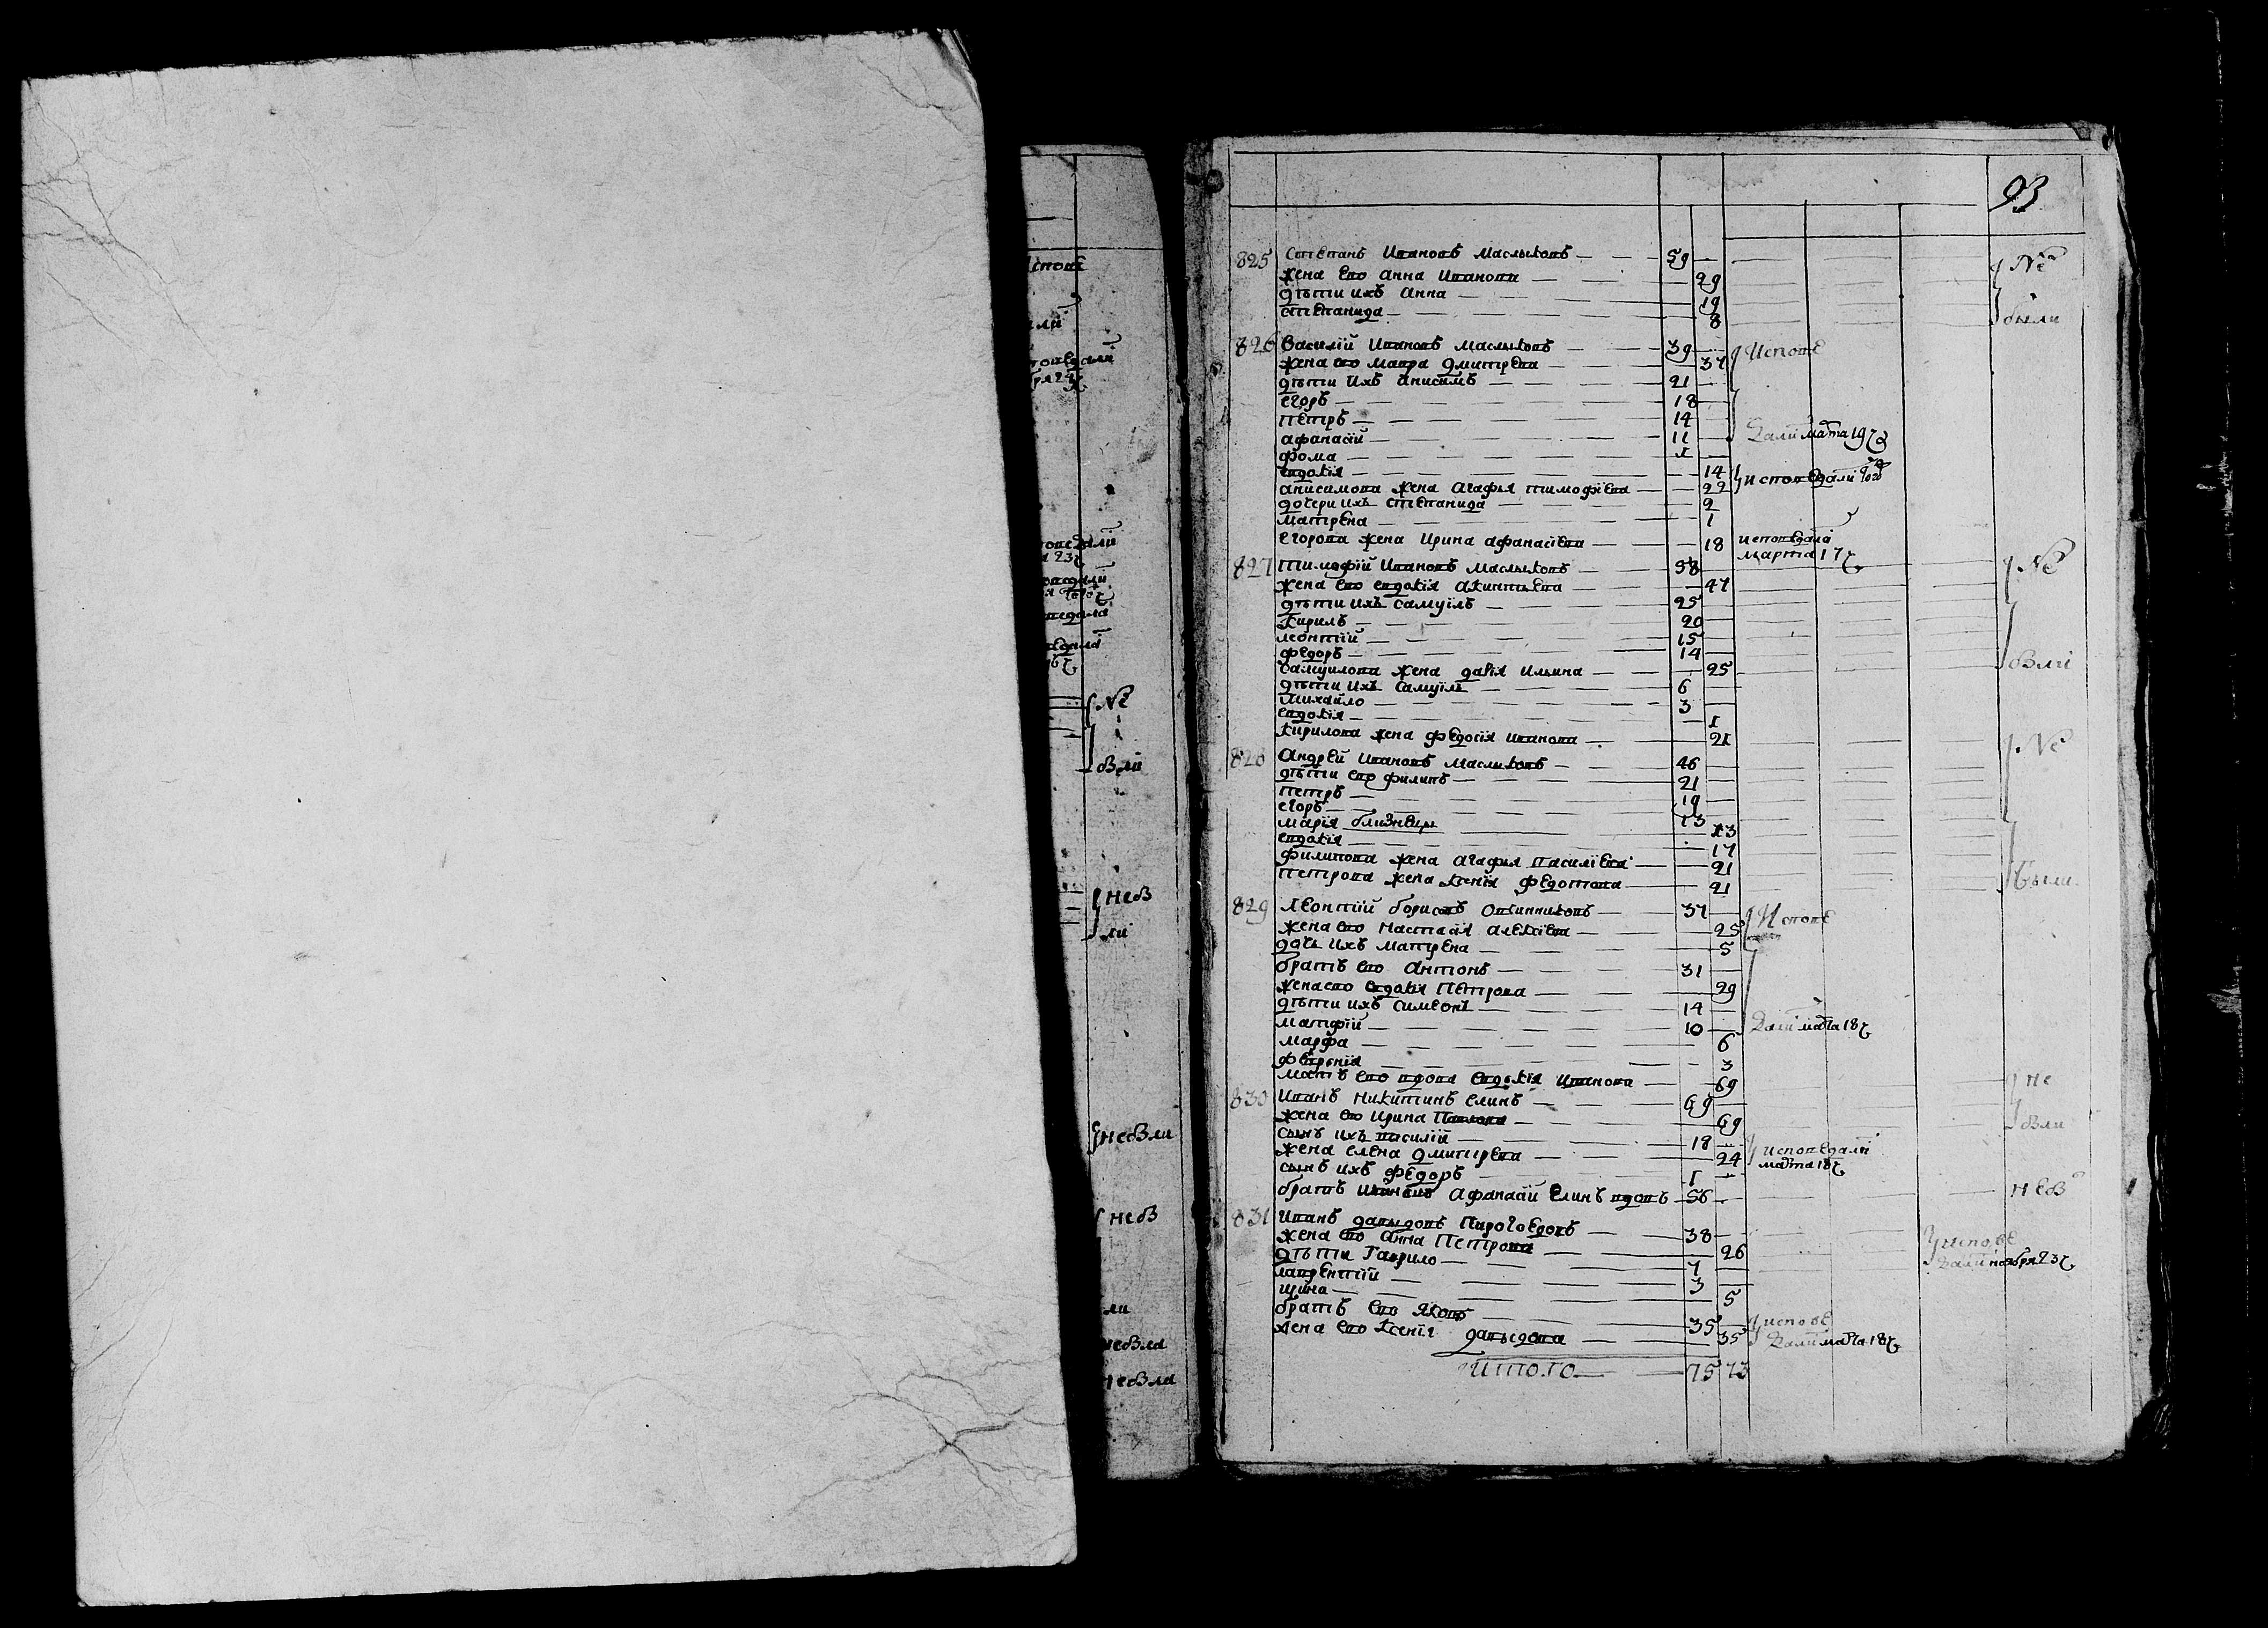 93
825 Степанъ Ивановъ Маслыковъ 59
жена ево Анна Иванова 29
дѣти ихъ Анна 19
Степанида 8
Не
были
826 Василїй Ивановъ Маслыковъ 39
жена ево Мавра Дмитрева 37
дѣти ихъ Анисимъ 21
Егоръ 18
Петръ 14
Афанасїй 11
Фома 1
Евдокїя 14
Анисимова жена Агафья Тимофѣева 22
дочери ихъ Степанида 2
Матрена 1
Егорова жена Ирина Афанасїева 18
Испове
дали марта 19 ч
исповедали
исповедала
марта 17 ч
827 Тимофїй Ивановъ Маслыковъ 58
жена ево Евдокїя Акинтьева 47
дѣти ихъ Самуїлъ 25
Кирилъ 20
Леонтїй 15
Федоръ 14
Самуилова жена Дарїя Ильина 25
дѣти ихъ Самуїлъ 6
Михайло 3
Евдокїя 1
Кирилова жена Федосїя Иванова 21
Не
были
828 Андрей Ивановъ Маслыковъ 46
дѣти ево Филипъ 21
Петръ 19
Егоръ 13
Марїя близнецы 13
Евдокїя 17
Филипова жена Агафья Василїева 21
Петрова жена Ксенїя Федотова 21
Не
были
829 Леонтїй Борисовъ Овчинниковъ 37
жена ево Настасїя Алексїева 25
дочь ихъ Матрена 5
братъ ево Антонъ 31
жена ево Евдокїя Петрова 29
дѣти ихъ Симеонъ 14
Матфїй 10
Марфа 6
Феvронїя 3
мать ево вдова Евдокїя Иванова 69
Испове
дали марта 18 ч
830 Иванъ Никитинъ Елинъ 69
жена ево Ирина Павлова 69
сынъ ихъ Василїй 18
жена Елена Дмитрева 24
сынъ ихъ Федоръ 1
братъ Ивановъ Афанасїй Елинъ вдовъ 56
не
были
исповедали
марта 18 ч
не б
831 Иванъ Давыдовъ Пирогоедовъ 38
жена ево Анна Петрова 26
дѣти Гаврило 7
Лаврентїй 3
Ирина 5
братъ ево Яковъ 35
жена ево Ксенїя Давыдова 35
испове
дали ноября 23 ч
испове
дали марта 18 ч
Итого 75 73